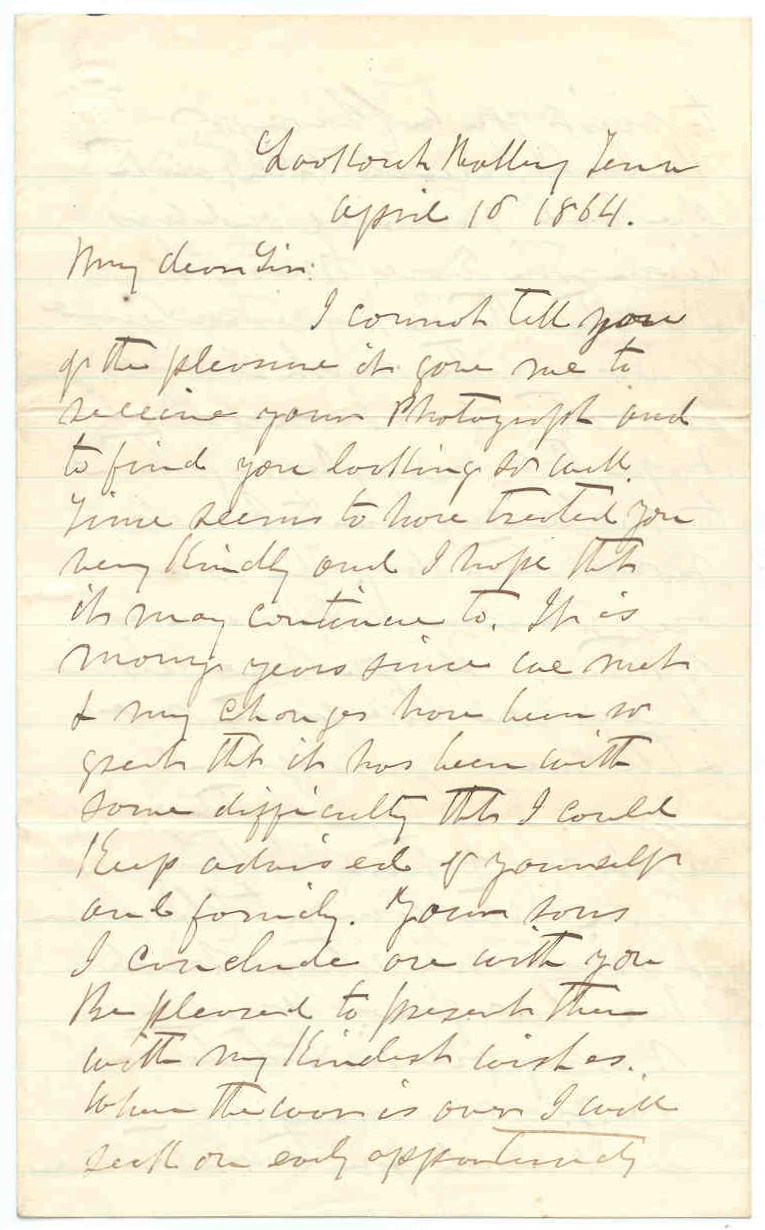 Lookout Valley Tenn
April 16 1864.
My dear Sir:
I cannot tell you
of the pleasure it gave me to
receive your Photograph and
to find you looking so well.
Time seems to have treated you
very kindly and I hope that
it may continue to. It is
many years since we met
& my changes have been so
great that it has been with
some difficulty that I could
Keep advised of yourself
and family. Your sons
I conclude are with you
Be pleased to present them
with my kindest wishes.
When the war is over I will
seek an early opportunity